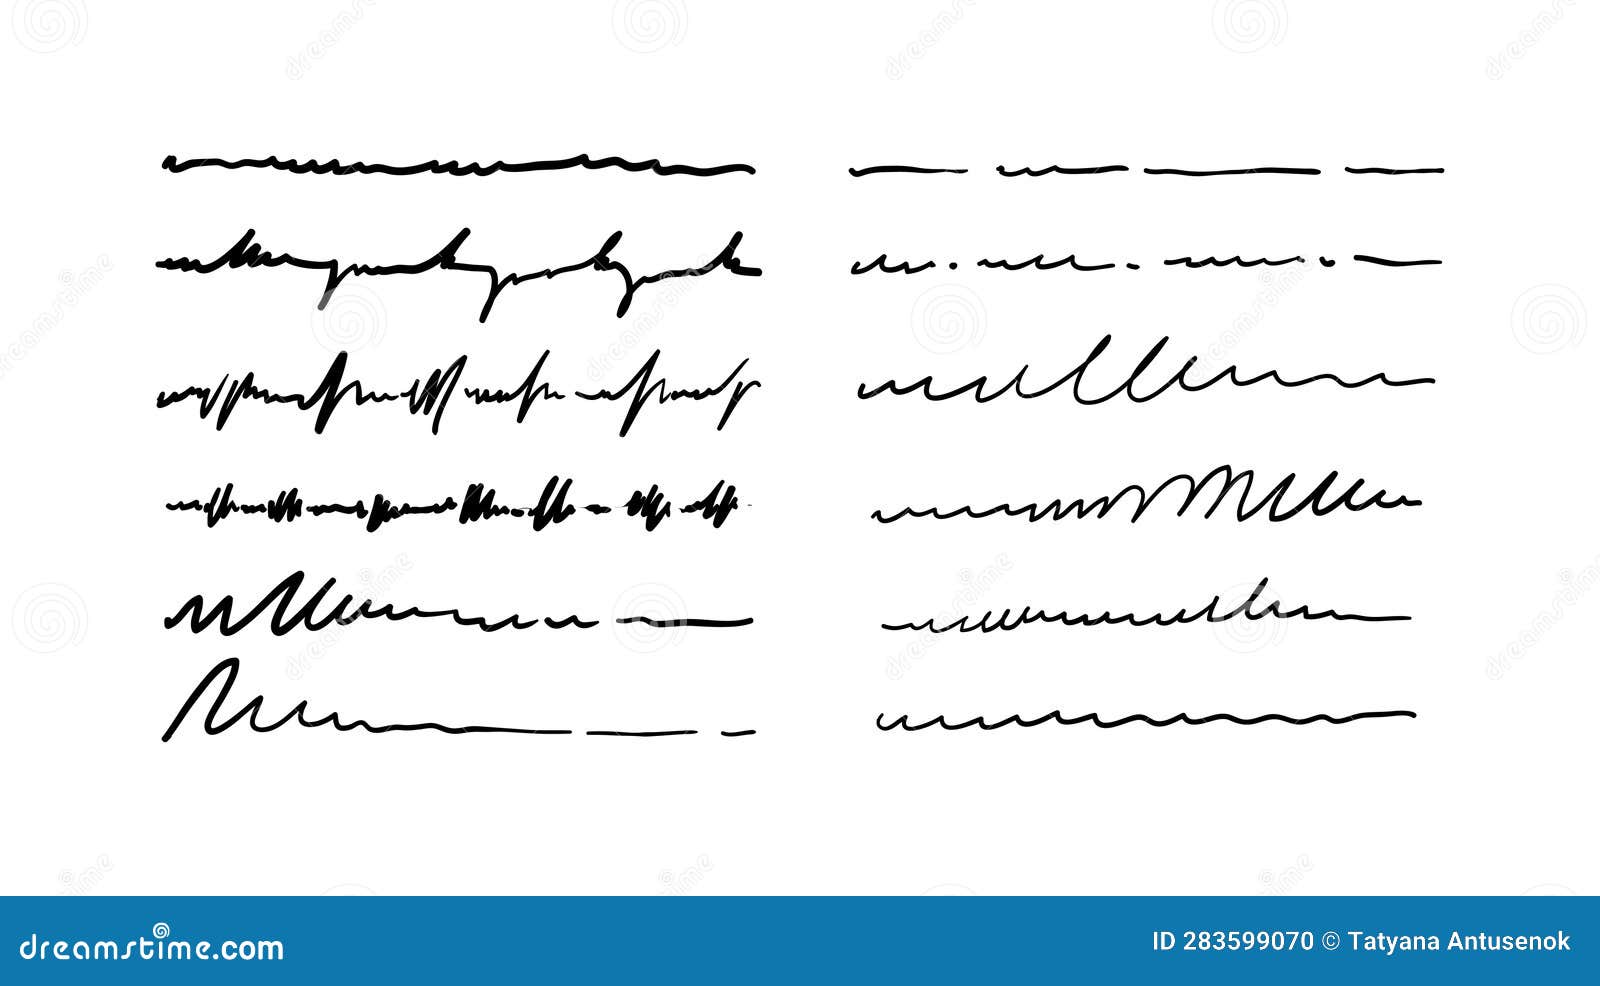 dreamstime.com
ID 283599070 © Tatyana Antusenok